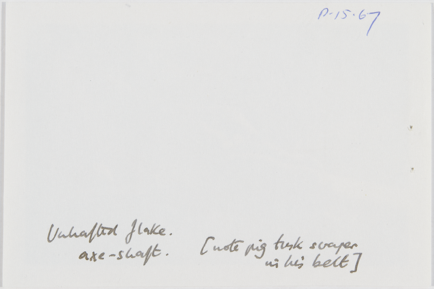 P-15-67
Unhafted flake.
axe-shaft. [note pig tusk scraper
in his belt]